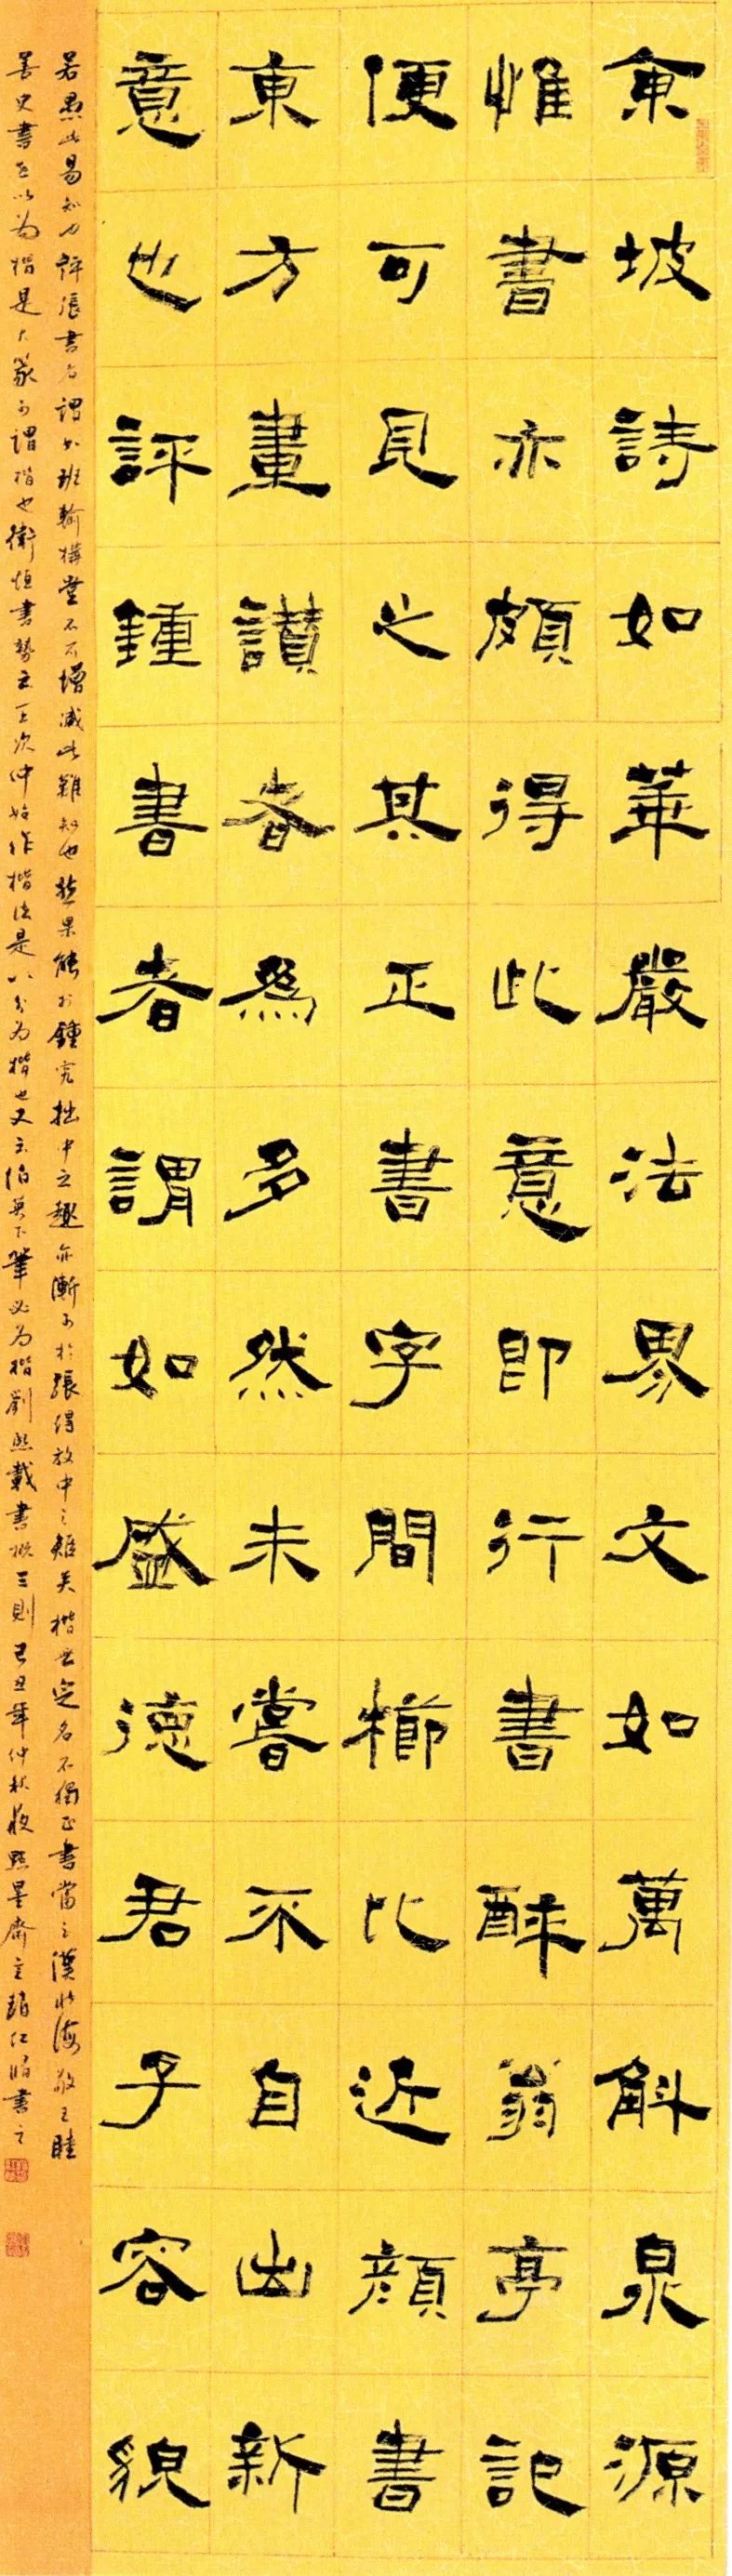 東坡詩如華嚴法界文如萬斛泉源
惟書亦頗得此意即行書醉翁亭記
便可見之其正書字間櫛比近顏書
東方畫讃者爲多然未嘗不自出新
意也評鍾書者謂如盛德君子容貌
若愚此易知也評張書者謂如班輸構堂不可增減此難知也然果能於鍾究拙中之趣亦漸可於張得放中之矩矣楷無定名不獨正書當之漢北海敬王睦
善史書世以為楷是大篆可謂楷也衛恒書勢云王次仲始作楷法是八分為楷也又云伯英下筆必為楷劉熙載書概三則己丑年仲秋夜點星齋主仁書之